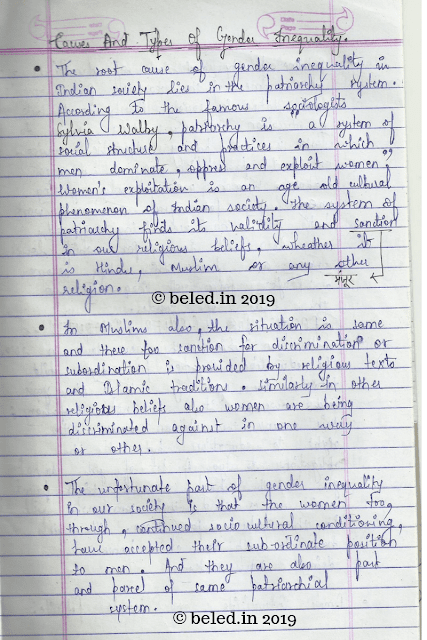 Causes And Types of Gender Inequality.
• The root cause of gender inequality in
Indian society lies in the patriarchy system.
According to the famous sociologists
Sylvia Walby, patriarchy is "a system of
social structure and practices in which
men dominate, oppress and exploit women."
Women's exploitation is an age old cultural
phenomenon of Indian society. The system of
patriarchy finds its validity and sanction
in our religious beliefs, wheather it
is Hindu, Muslim or any other
religion.
मंजूर
© beled.in 2019
• In Muslims also, the situation is same
and there too sanction for discrimination or
subordination is provided by religious texts
and Islamic traditions. similarly in other
religious beliefs also women are being
discriminated against in one way
or other.
• The unfortunate part of gender inequality
in our society is that the women too,
through, continued socio-cultural conditioning,
have accepted their sub-ordinate position
to men. And they are also part
and parcel of same patriarchial
system.
© beled.in 2019